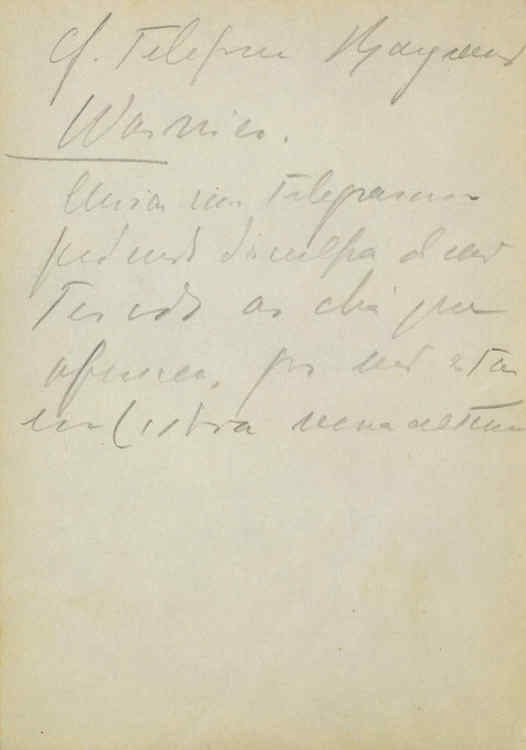 Cf. Telefone
Warnico.
Envia um telegrama
pedindo disculpa de não
ter ido ao chá que
ofereceu, por não estar
em Lisboa nessa altura